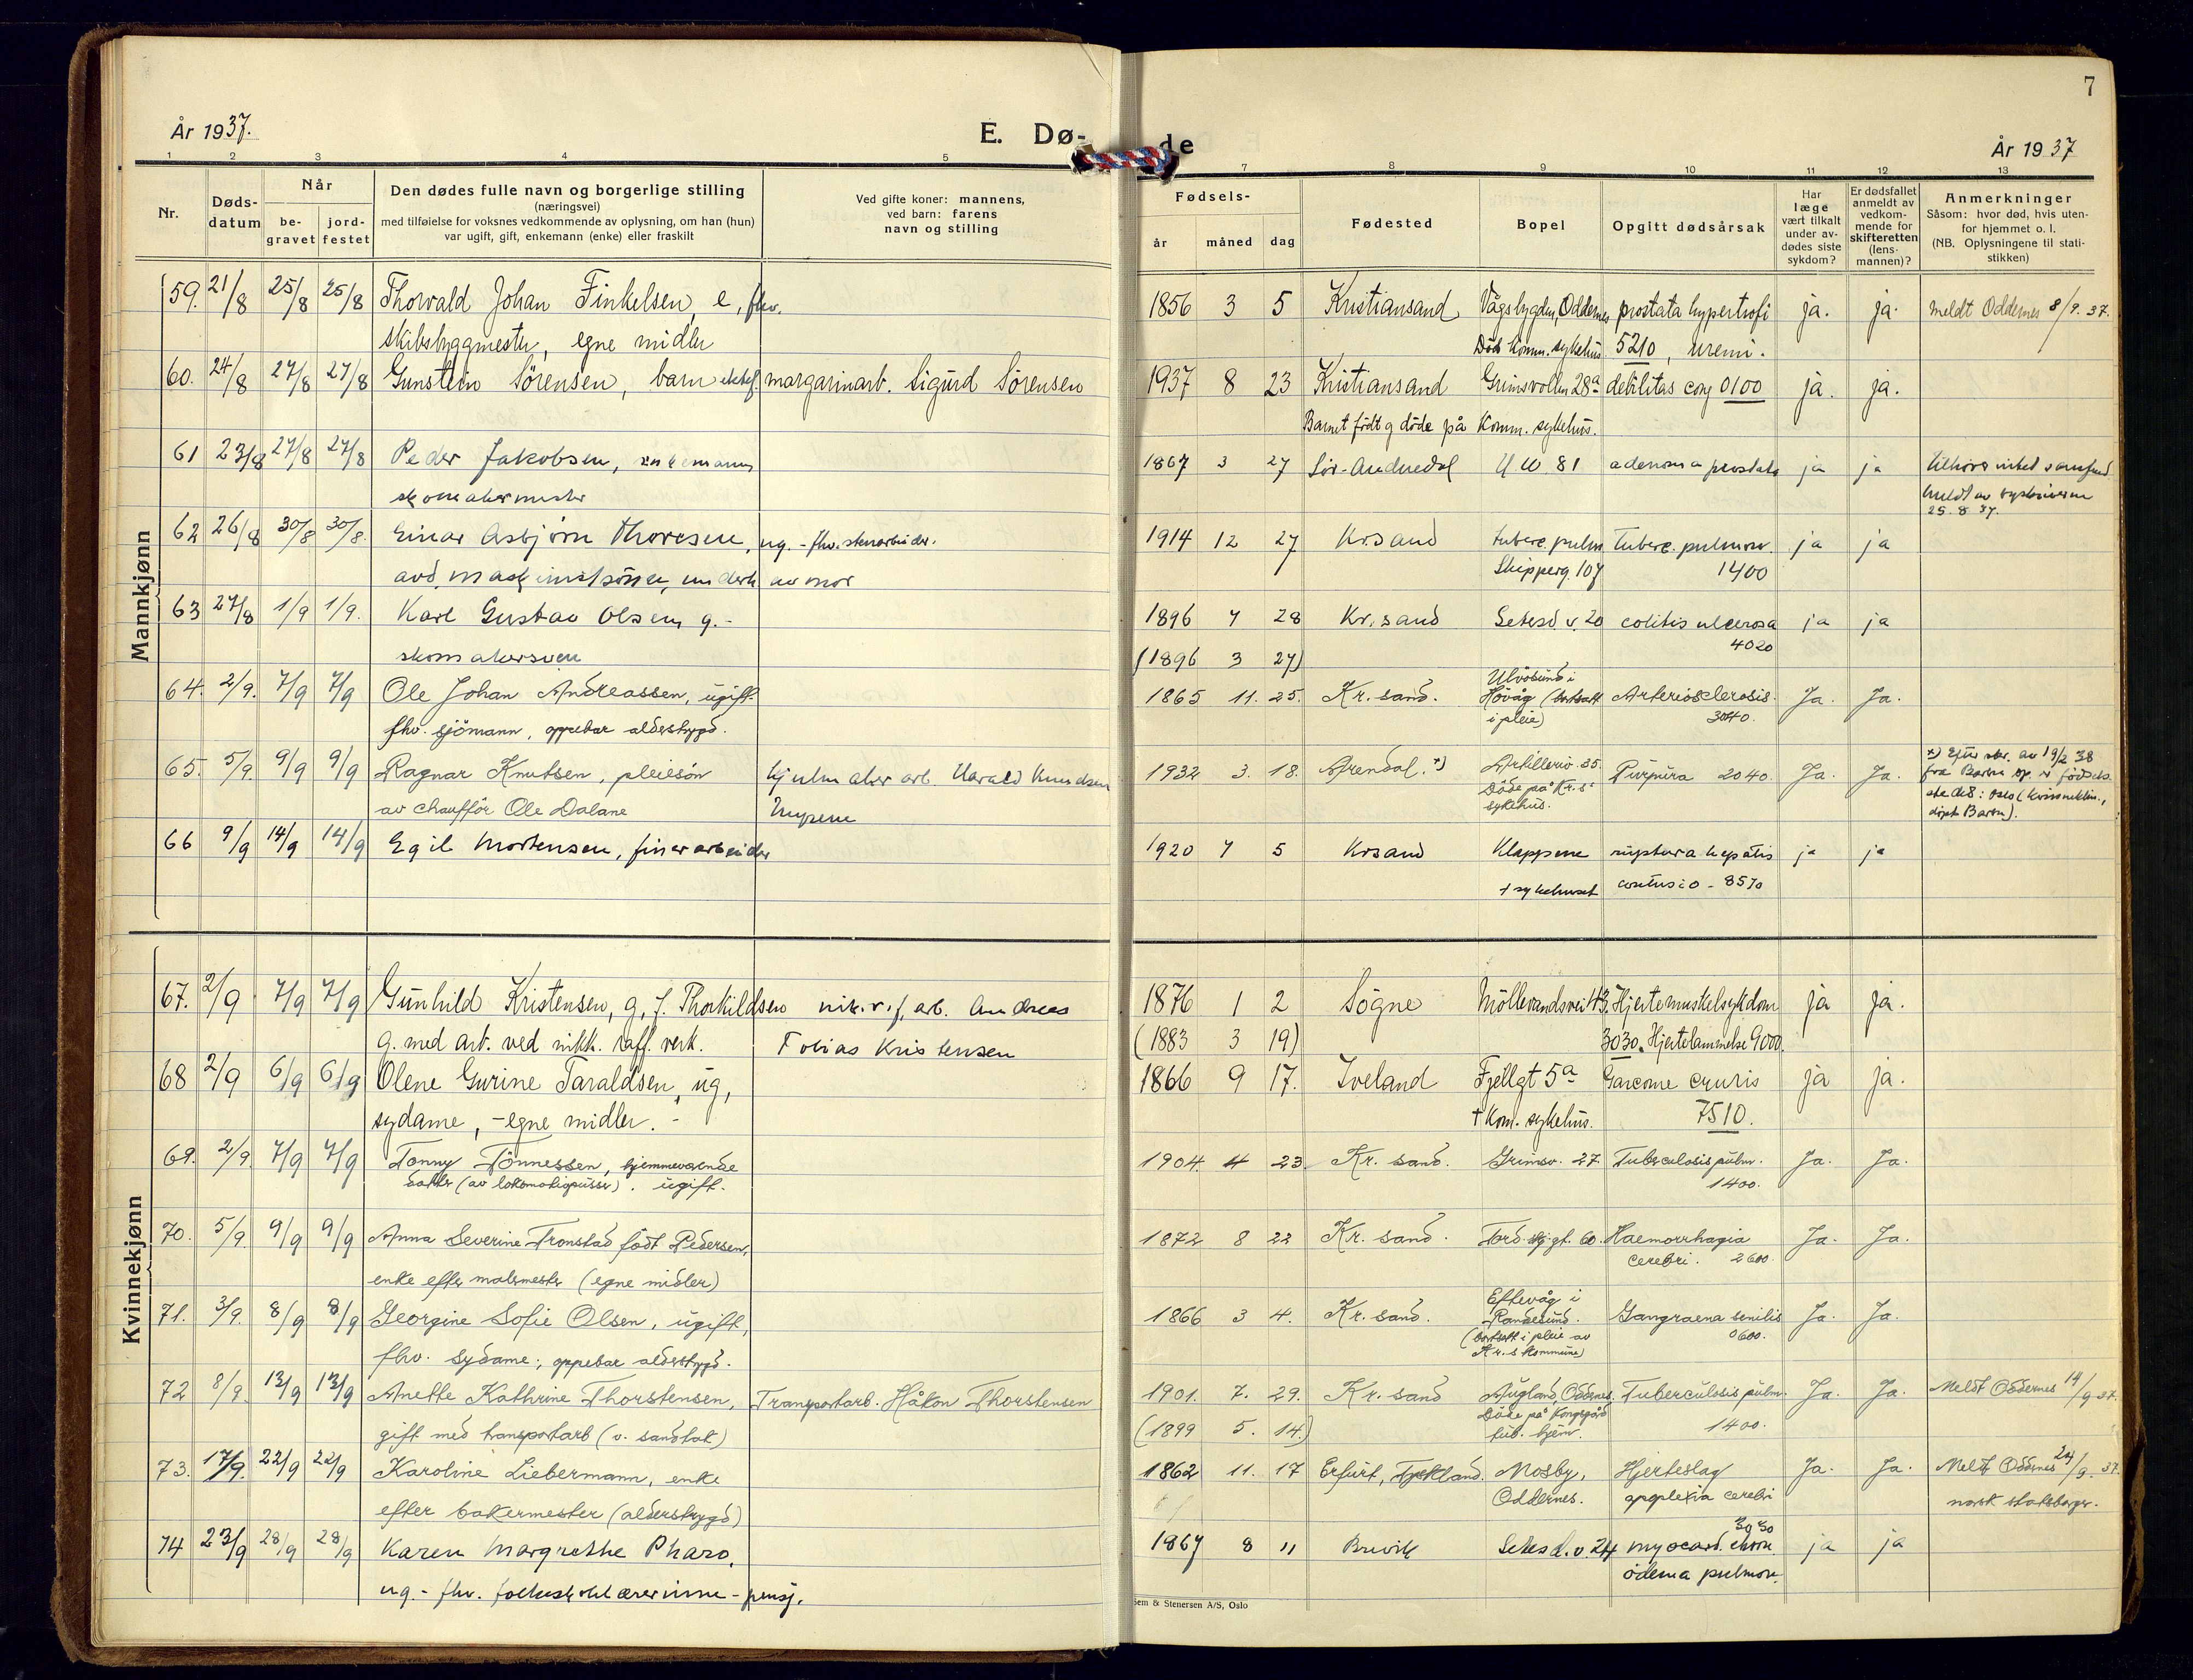 7
År 1937.
E. Dø-
de
År 1937
1 2 3 4 5 7 8 9 10 11 12 13
Nr.
Døds-
datum
Når
be-
gravet
jord-
festet
Den dødes fulle navn og borgerlige stilling
(næringsvei)
med tilføielse for voksnes vedkommende av oplysning, om han (hun)
var ugift, gift, enkemann (enke) eller fraskilt
Ved gifte koner: mannens,
ved barn: farens
navn og stilling
Fødsels-
år måned dag
Fødested
Bopel
Opgitt dødsårsak
Har
læge
vært tilkalt
under av-
dødes siste
sykdom?
Er dødsfallet
anmeldt av
vedkom-
mende for
skifteretten
(lens-
mannen)?
Anmerkninger
Såsom: hvor død, hvis uten-
for hjemmet o. l.
(NB. Oplysningene til stati-
stikken)
Mannkjønn
59. 21/8 25/8 25/8 Thorvald Johan Finkelsen, e, fhv. 1856 3 5 Kristiansand Vågsbygden, Oddernes prostata hypertrofi ja. ja. meldt Oddernes 8/9. 37.
skibsbyggmester, egne midler Död komm. sykehus 5210, uremi.
60. 24/8 27/8 27/8 Gunstein Sörensen, barn ektef. margarinarb. Sigurd Sörensen 1937 8 23 Kristiansand Grimsvollen 28a debilitas cong 0100 ja. ja.
Barnet födt og döde på Komm. sykehus.
61 23/8 27/8 27/8 Peder Jakobsen, enkemann 1867 3 27 Sör-Audnedal 81 adenoma prostata ja ja
skomakermester
25.8.37.
62 26/8 30/8 30/8. Einar Asbjörn Thoresen, ug. - fhv. stenarbeider. 1914 12 27 Kr.sand tuberc. pulm Tuberc. pulmon. ja ja
avd. maskinist sönn, underh av mor Skipperg. 107 1400
63 27/8 1/9 1/9. Karl Gustav Olsen, g. - 1896 7 28 Kr.sand Setesd. v. 20 colitis ulcerosa ja ja
skomakersven (1896 3 27) 4020
64. 2/9. 7/9 7/9 Ole Johan Andreassen, ugift. 1865 11. 25. Kr. sand. Ulvösund i Hövåg (bortsatt i pleie) Arteriosclerosis. Ja. Ja.
fhv. sjömann, oppebar alderstrygd. 3040.
65. 5/9. 9/9 9/9 Ragnar Knutsen, pleiesön hjulmaker arb. Harald Knudsen 1932 3. 18. Arendal. *) Artilleriv. 35. Purpura 2040. Ja. Ja. *) Efter skr. av 19/2 38
av chauffør Ole Dalane Döde på Kr.s sykehus. fra Barbu fødsels-
sted: Oslo (kvinneklin.,
döpt Barbu).
66 9/9 14/9 14/9 Egil Mortensen, finerarbeider 1920 7 5 Krsand Klappene ruptura hepatis ja ja
+ sykehuset contusio - 8570
Kvinnekjønn
67. 2/9 7/9 7/9 Gunhild Kristensen, g, f. Thorkildsen nik. r. f. arb. Andreas 1876 1 2 Sögne Möllevandsvei 43. Hjertemuskelsykdom ja ja.
g. med arb. ved nikk. raff. verk. Tobias Kristensen (1883 3 19) 3030. Hjertelammelse 9000.
68 2/9 6/9 6/9 Olene Gurine Taraldsen, ug, 1866 9 17. Iveland Fjellgt 5a Sarcome cruris ja ja.
sydame, - egne midler. - + Kom. sykehus. 7510.
69. 2/9. 7/9 7/9 Tonny Tönnessen, hjemmeværende 1904 4 23 Kr. sand. Grimsv. 27 Tuberculosis pulm. Ja. Ja.
datter (av lokomotivpusser). ugift. 1400.
70. 5/9. 9/9 9/9 Anna Severine Tronstad födt Pedersen, 1872 8 22 Kr. sand. Tordskj.gt. 60. Haemorrhagia Ja. Ja.
enke efter malermester (egne midler) cerebri. 2600.
71. 3/9. 8/9 8/9 Georgine Sofie Olsen, ugift, 1866 3 4. Kr. sand. Eftevåg i Randesund. Gangraena senilis Ja. Ja.
fhv. sydame, oppebar alderstrygd. (bortsatt i pleie av Kr.s kommune) 0600.
72 8/9. 13/9 13/9 Anette Kathrine Thorstensen, Transportarb. Håkon Thorstensen 1901. 7. 29. Kr. sand Augland, Oddernes. Tuberculosis pulm. Ja. Ja. Meldt Oddernes 14/9 37.
gift med transportarb (v. sandtak) (1899 5. 14.) Döde på Kongsgård tub. hjem. 1400.
73. 17/9. 22/9 22/9 Karoline Liebermann, enke 1862 11. 17 Erfurt, Tyskland. Mosby, Hjerteslag Ja. Ja. Meldt Oddernes 24/9. 37.
efter bakermester (alderstrygd) Oddernes. apoplexia cerebri norsk statsborger.
74 23/9 28/9 28/9 Karen Margrethe Pharo, 1867 8 11 Brevik Setesd. v. 24 myocard. chron. 3030 ja ja
ug. - fhv. folkeskolelærerinne - pensj. ödema pulmon.
Sem & Stenersen A/S, Oslo